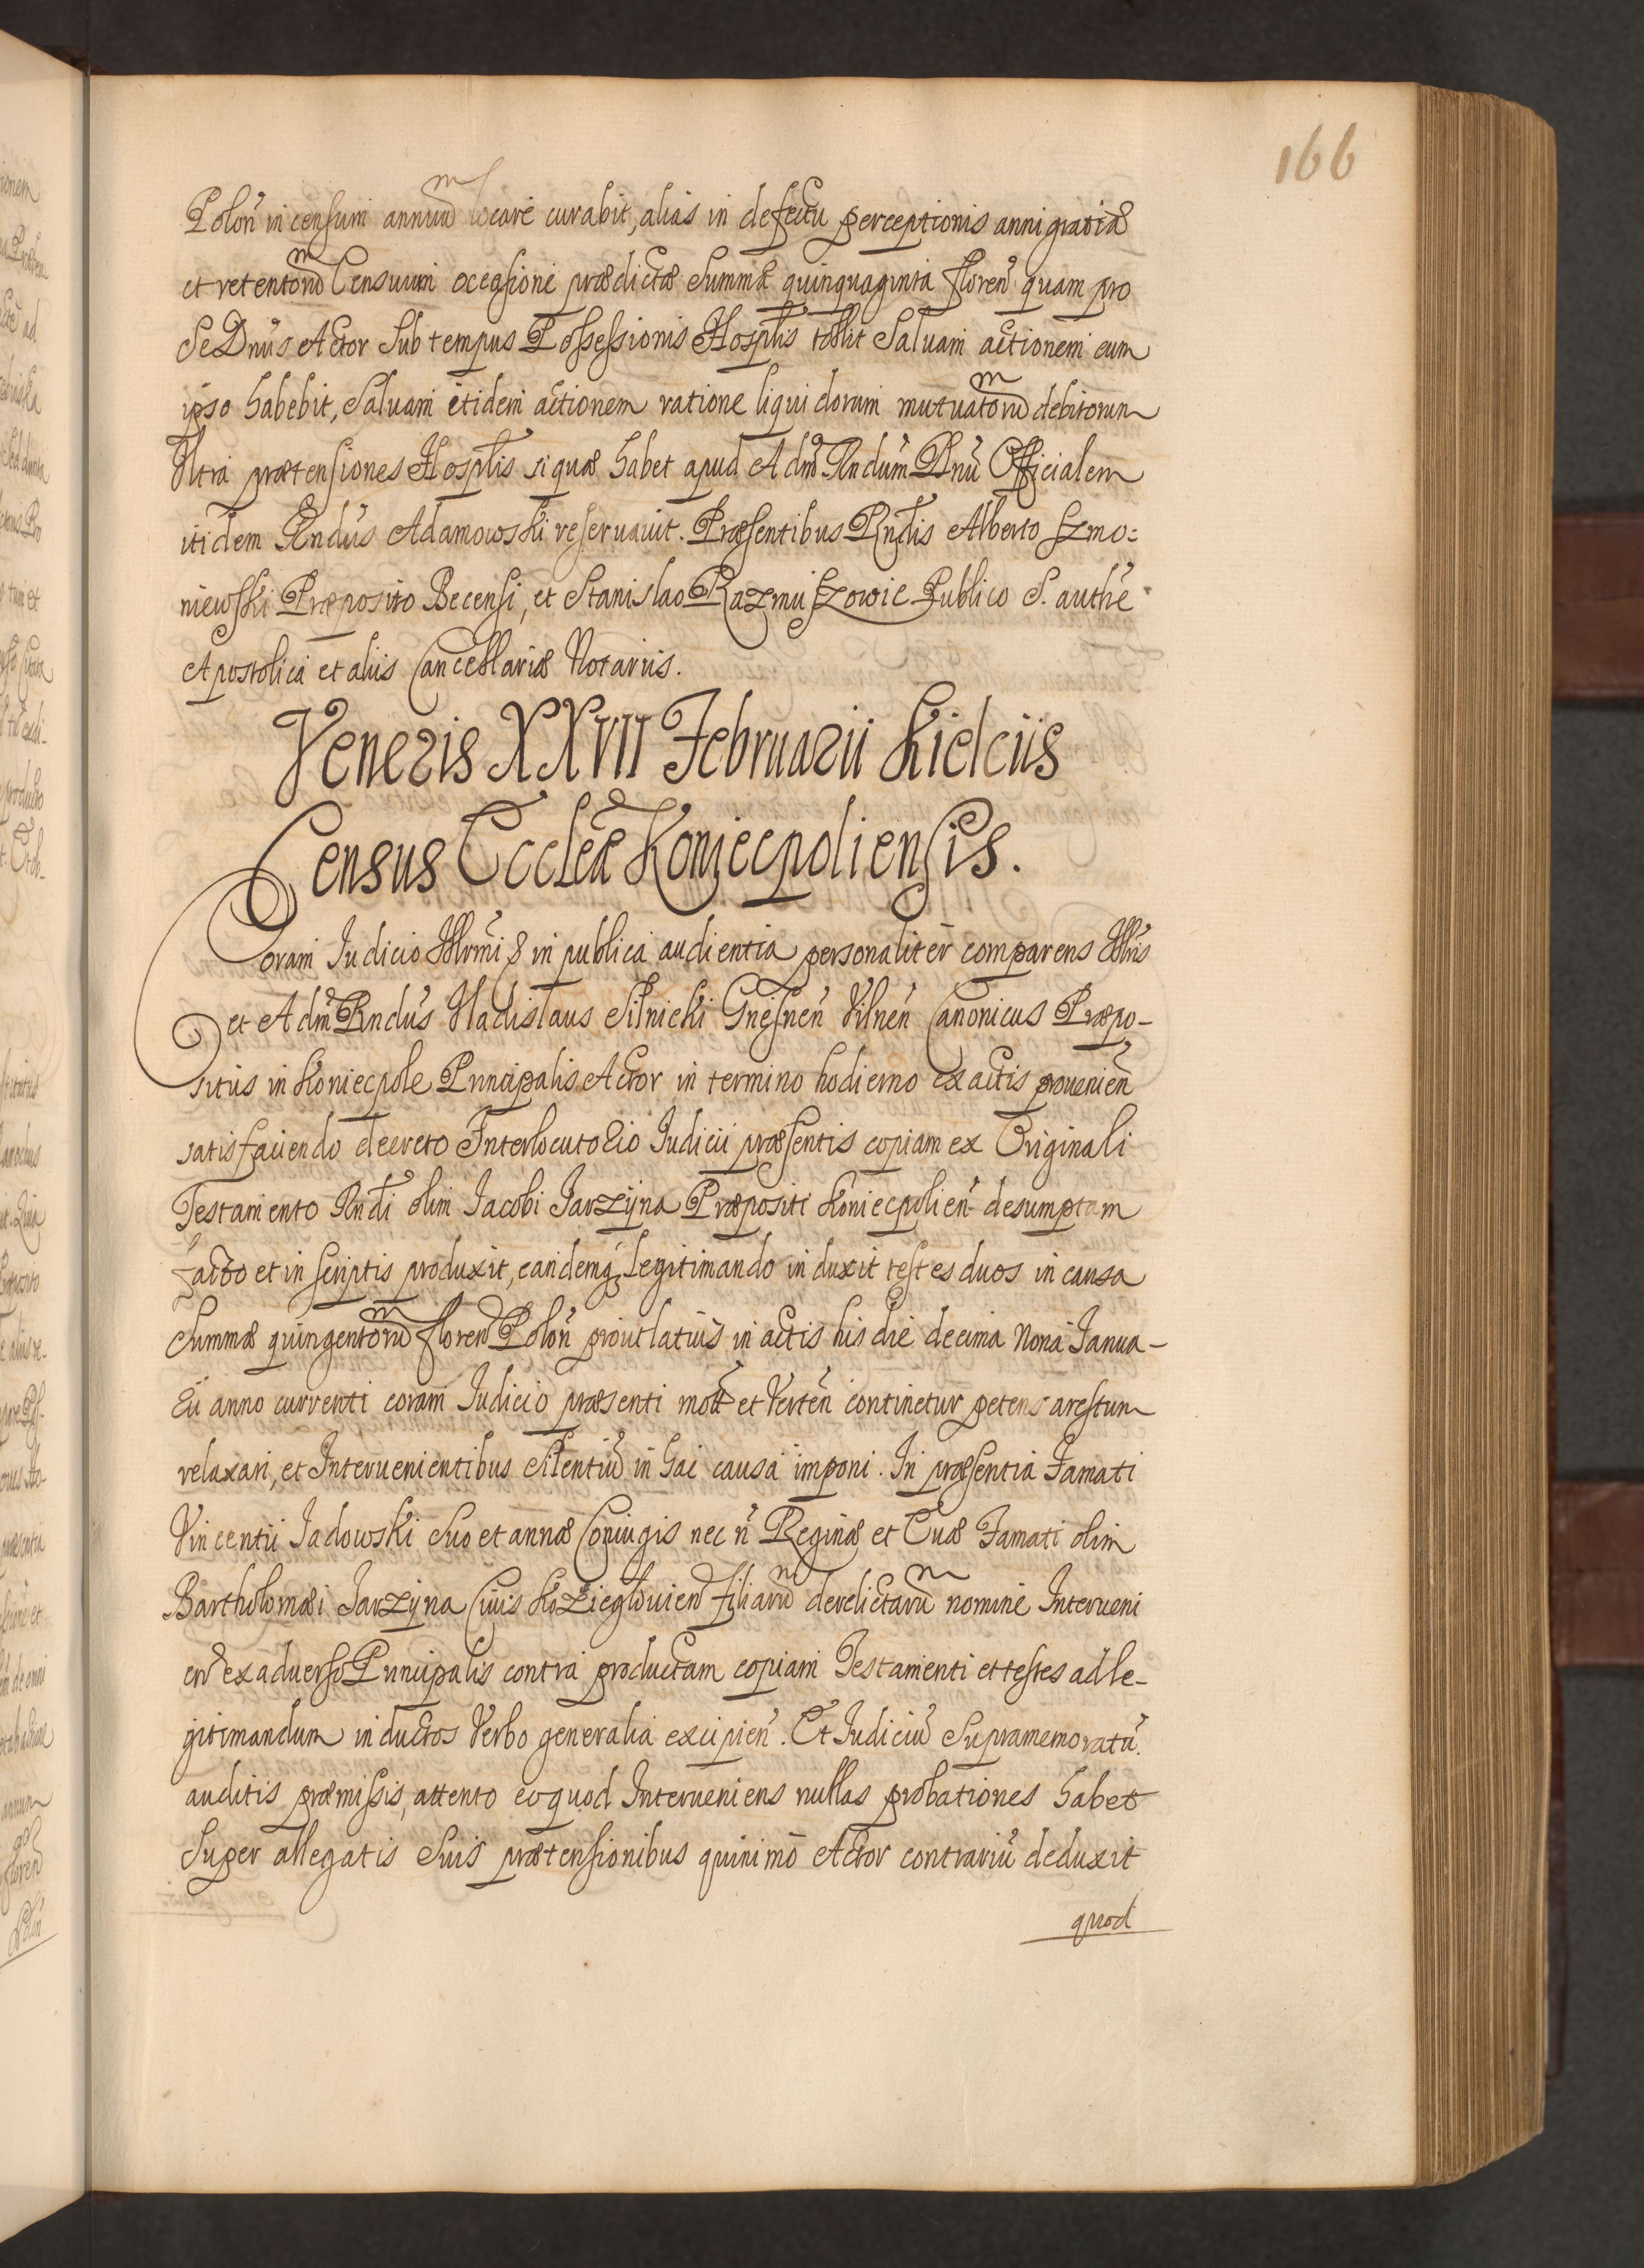 166
Polon̄ in censum annuū locare curabit, alias in defectu perceptionis anni gratiæ
et retentorū Censuum occasione prædictæ Summæ quinquaginta floren̄ quam pro
Se Dnūs Actor Sub tempus Possessionis Hosplīs tollit Saluam actionem cum
ipso habebit, Saluam itidem actionem ratione liquidorum mutuatorū debitorum
Ultra prætensiones Hosplīs si quas habet apud Admō Rndūm Dnū Officialem
itidem Rndūs Adamowski reseruauit. Præsentibus Rndīs Alberto Szmo=
niewski Præposito Becensi, et Stanislao Kazmiszowic Publico S. authē
Apostolica et aliis Cancellariæ Notariis.
Veneris XXVII Februarii Kielciis
Census Ecclēæ Koniecpoliensis.
Coram Iudicio Illrmī & in publica audientia personaliter comparens Illrīs
et Admō Rndūs Uladislaus Silnicki Gnesnen̄ Vilnen̄ Canonicus Præpo-
situs in Koniecpole Principalis Actor in termino hodierno ex actis prouenien̄
satisfaciendo decreto Interlocutorio Iudicii præsentis copiam ex Originali
Testamento Rndī olim Iacobi Jarzyna Præpositi Koniecpolien̄ desumptam
facto et in scriptis produxit, eandemq̄ legitimando induxit testes duos in causa
Summæ quingentorū floren̄ Polon̄ prout latius in actis his die decima Nona Ianua-
rii anno currenti coram Iudicio præsenti mott̄ et Verten̄ continetur petens arestum
relaxari, et Interuenientibus silentiū in hac causa imponi. In præsentia Famati
Vincentii Jadowski Suo et annæ Coniugis nec n̄ Reginæ et Euæ Famati olim
Bartholomæi Jarzyna Ciuis Kozieglouien̄ filiarū derelictarū nomine Interueni
en̄ ex aduerso Principalis contra productam copiam Testamenti et testes ad le-
gitimandum inductos Verbo generalia excipien̄. Et Iudiciū Supramemoratū
auditis præmissis, attento eo quod Interueniens nullas probationes habet
Super allegatis Suis prætensionibus quinimō Actor contrariū deduxit
quod